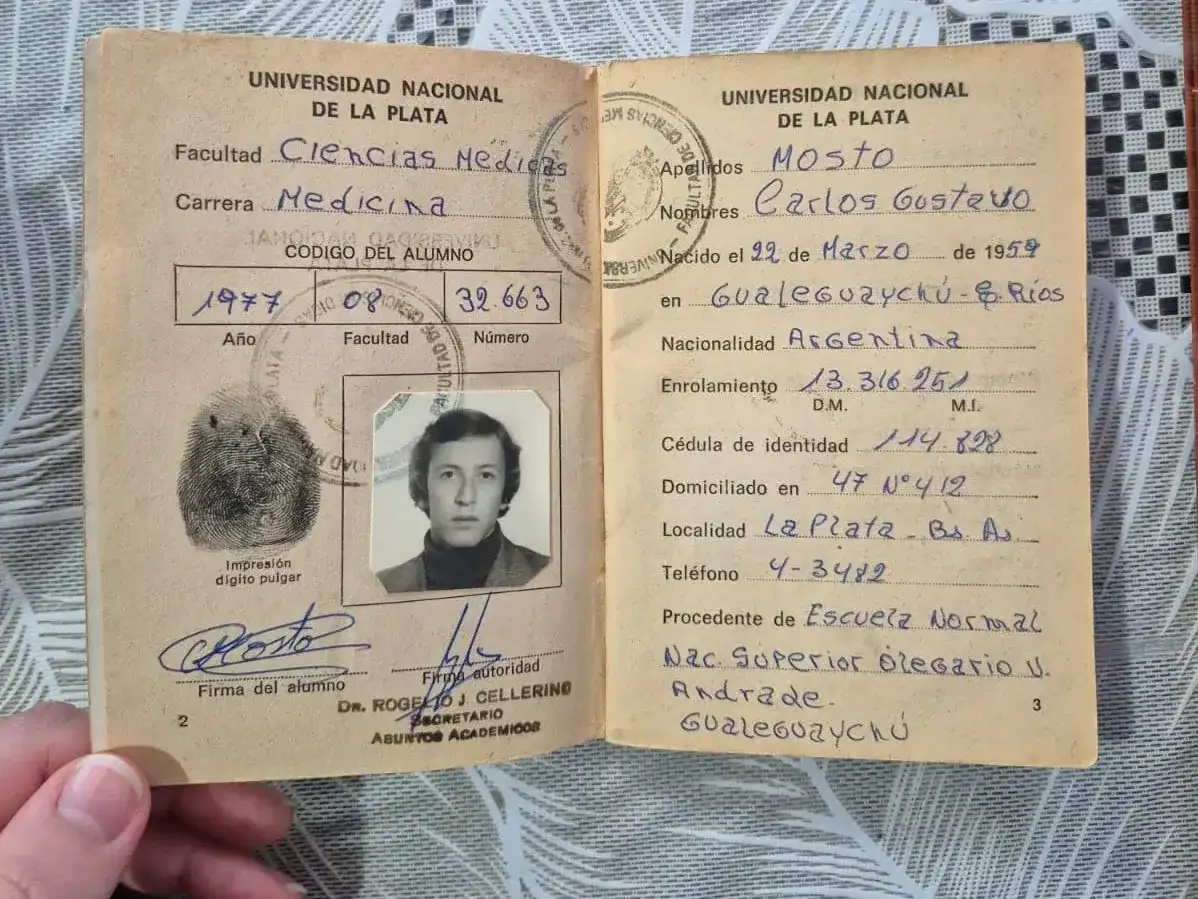 UNIVERSIDAD NACIONAL
DE LA PLATA
Facultad Ciencias Medicas
Carrera Medicina
CODIGO DEL ALUMNO
1977 08 32.663
Año Facultad Número
Impresión
dígito pulgar
CMosto
Firma del alumno
Firma autoridad
DR. ROGELIO J. CELLERINO
SECRETARIO
ASUNTOS ACADEMICOS
2
UNIVERSIDAD NACIONAL
DE LA PLATA
Apellidos Mosto
Nombres Carlos Gustavo
Nacido el 22 de Marzo de 1959
en Gualeguaychú - E. Ríos
Nacionalidad Argentina
Enrolamiento 13.316.251
D.M. M.I.
Cédula de identidad 114.828
Domiciliado en 47 N° 412
Localidad La Plata - Bs. As.
Teléfono 4-3482
Procedente de Escuela Normal
Nac. Superior Olegario V.
Andrade.
Gualeguaychú
3